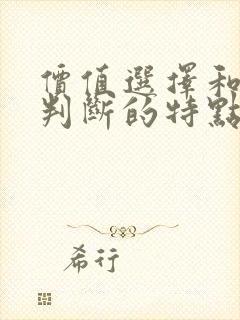 價值選擇和
判斷的特點
希行